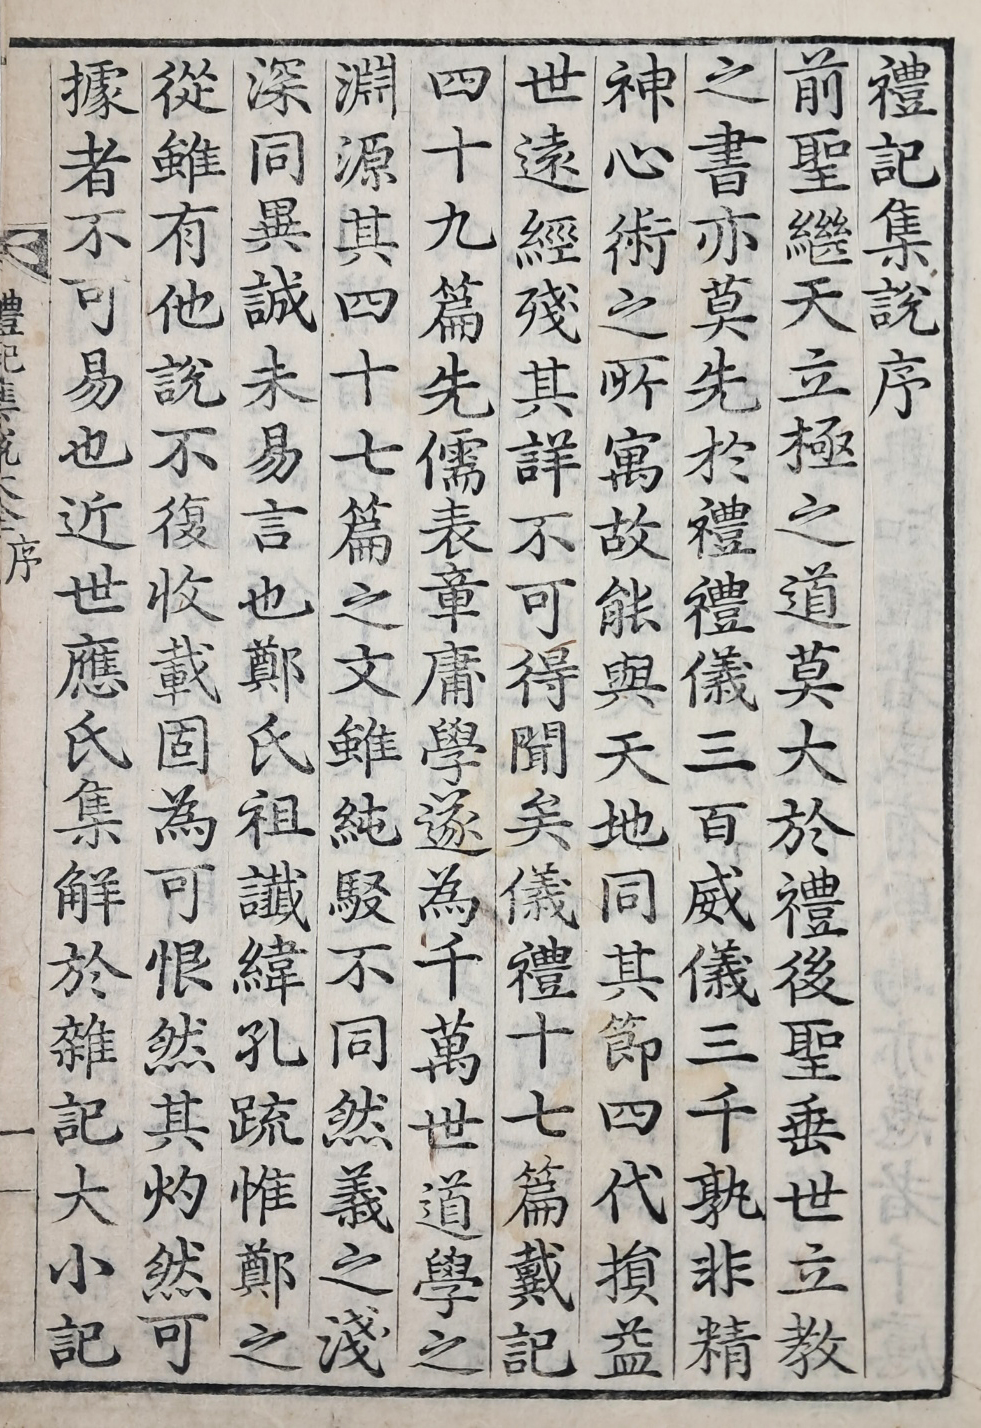 禮記集說序
前聖繼天立極之道莫大於禮後聖垂世立教
之書亦莫先於禮禮儀三百威儀三千孰非精
神心術之所寓故能與天地同其節四代損益
世遠經殘其詳不可得聞矣儀禮十七篇戴記
四十九篇先儒表章庸學遂為千萬世道學之
淵源其四十七篇之文雖純駁不同然義之淺
深同異誠未易言也鄭氏祖讖緯孔疏惟鄭之
從雖有他說不復收載固為可恨然其灼然可
據者不可易也近世應氏集解於雜記大小記
禮記集說大全序
一